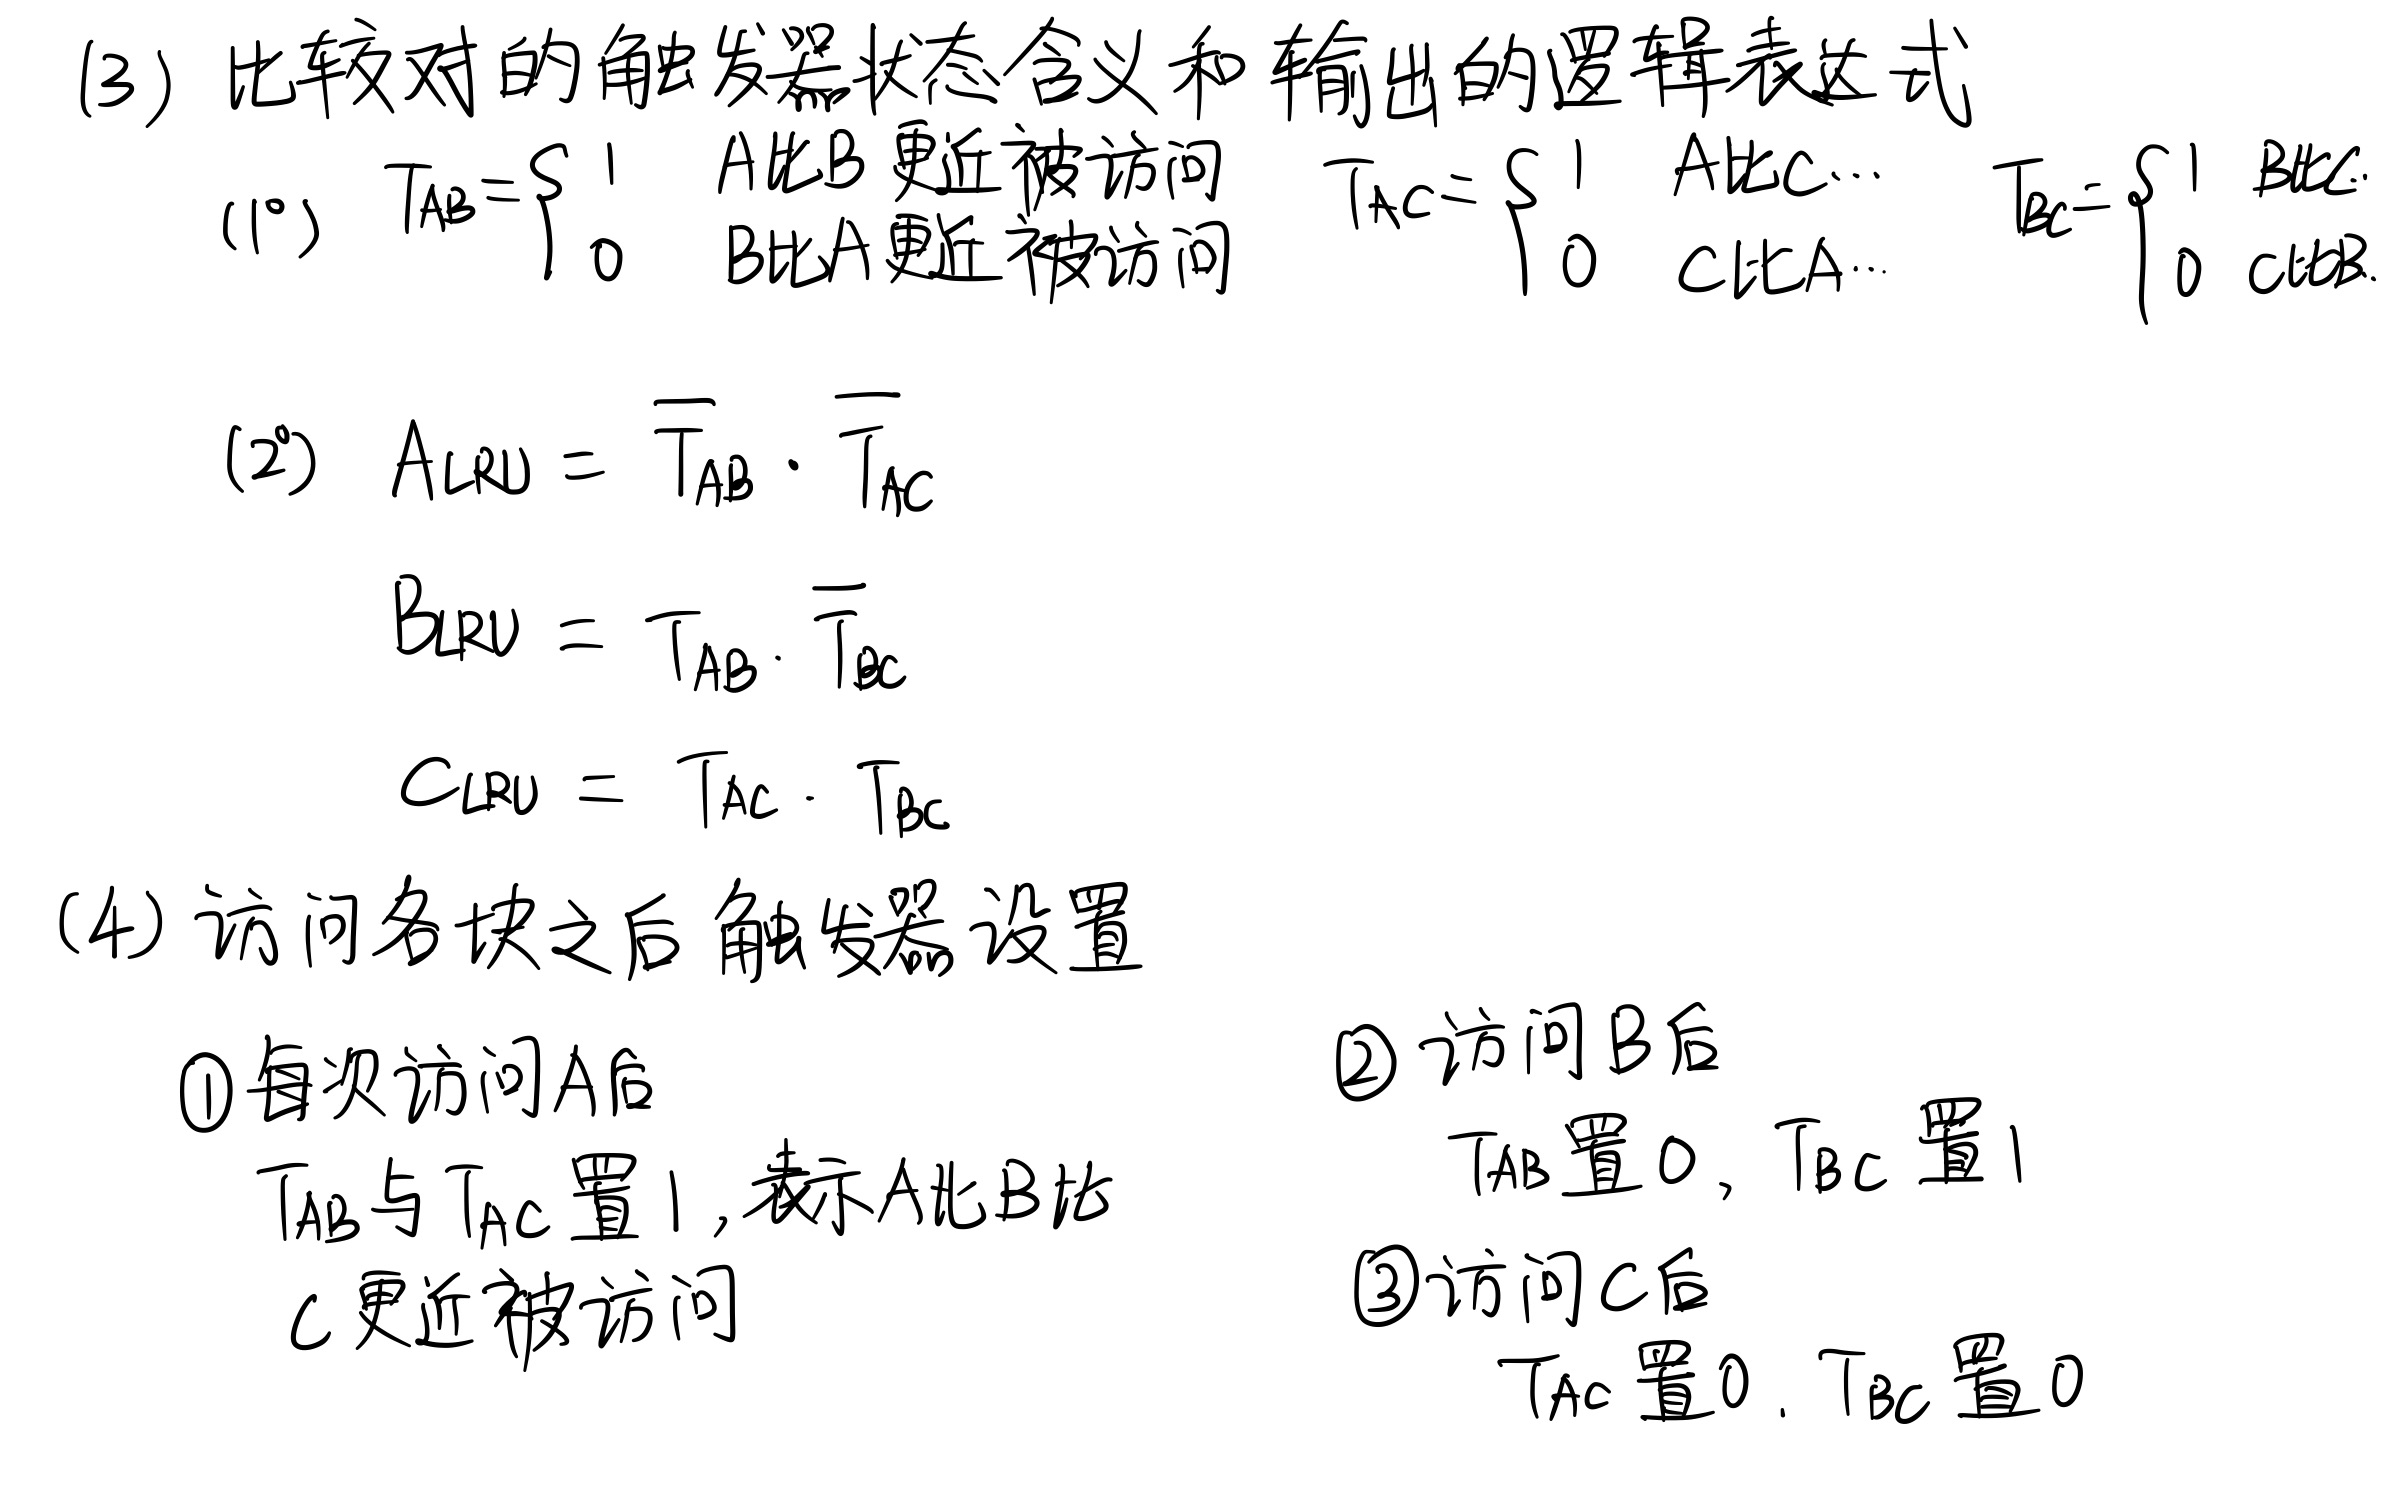 (3) 比较对的触发器状态含义和输出的逻辑表达式
(1°) T_AB = { 1 A比B更近被访问 T_AC = { 1 A比C... T_BC = { 1 B比C..
0 B比A更近被访问 0 C比A... 0 C比B..
(2°) A_LRU = \overline{T_AB} · \overline{T_AC}
B_LRU = T_AB · \overline{T_BC}
C_LRU = T_AC · T_BC
(4) 访问各块之后触发器设置
① 每次访问A后
T_AB与T_AC置1, 表示A比B比
C更近被访问
② 访问B后
T_AB置0, T_BC置1
③ 访问C后
T_AC置0. T_BC置0